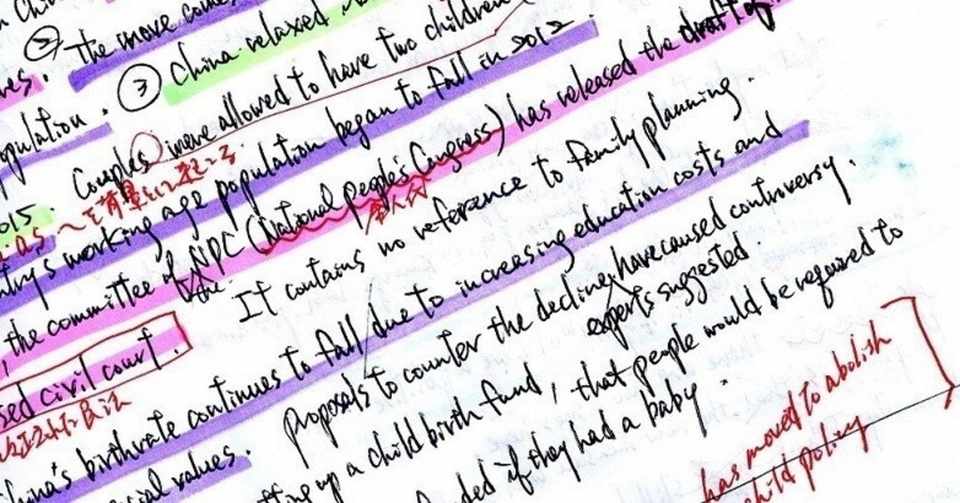 ② the move comes
ves.
③ China relaxed
opulation. Couples were allowed to have two children
2015.
ntry's working age population began to fall in 2012.
, the committee of the NPC (National people's Congress) has released the draft of
全人代
It contains no reference to family planning.
sed civil court.
hina's birthrate continues to fall due to increasing education costs and
cial values.
proposals to counter the decline have caused controversy.
experts suggested
tting up a child birth fund, that people would be required to
nded if they had a baby.
has moved to abolish
child policy